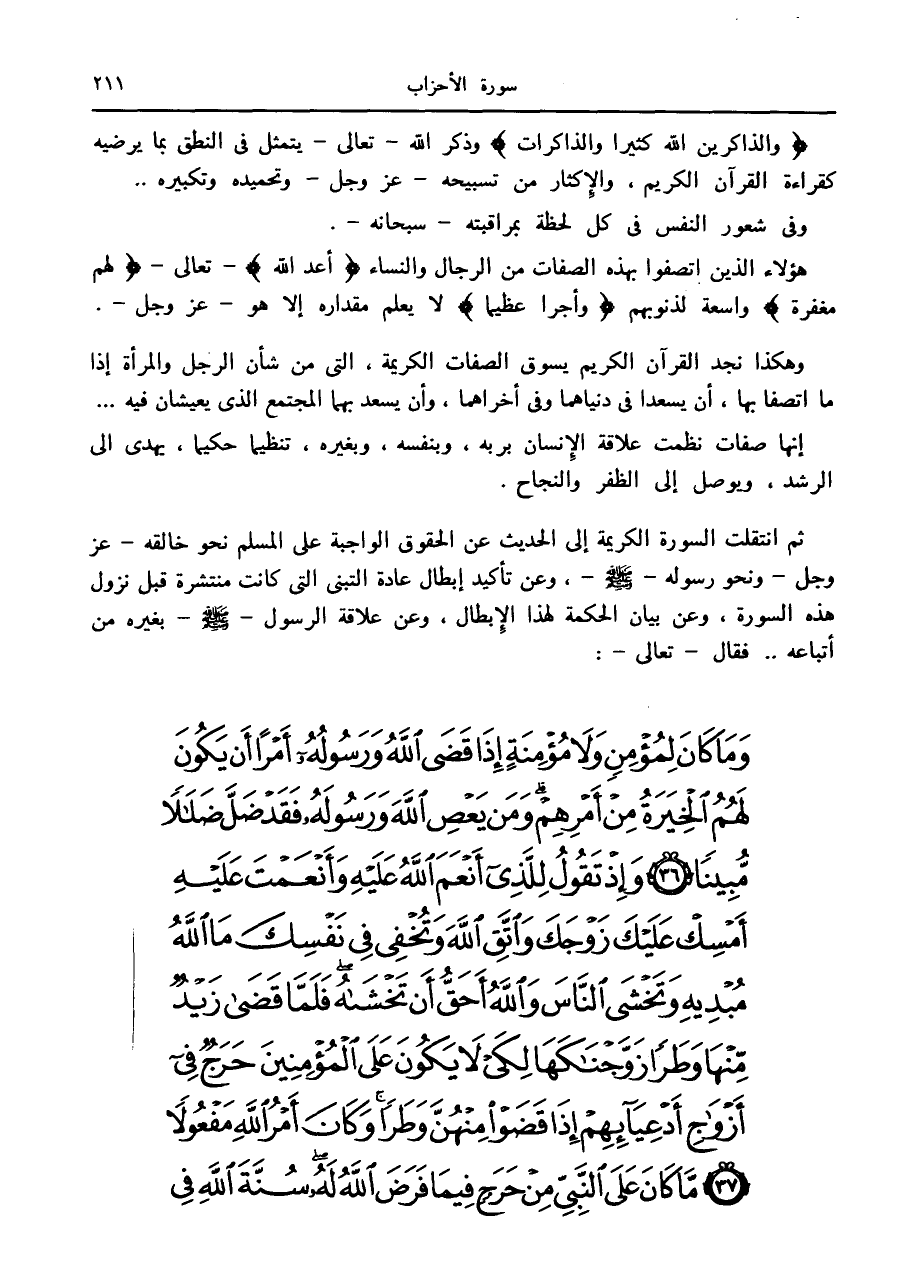 سورة الأحزاب ٢١١
﴿ والذاكرين الله كثيرا والذاكرات ﴾ وذكر الله - تعالى - يتمثل فى النطق بما يرضيه
كقراءة القرآن الكريم ، والإكثار من تسبيحه - عز وجل - وتحميده وتكبيره ..
وفى شعور النفس فى كل لحظة بمراقبته - سبحانه - .
هؤلاء الذين اتصفوا بهذه الصفات من الرجال والنساء ﴿ أعد الله ﴾ - تعالى - ﴿ لهم
مغفرة ﴾ واسعة لذنوبهم ﴿ وأجرا عظيما ﴾ لا يعلم مقداره إلا هو - عز وجل - .
وهكذا نجد القرآن الكريم يسوق الصفات الكريمة ، التى من شأن الرجل والمرأة إذا
ما اتصفا بها ، أن يسعدا فى دنياهما وفى أخراهما ، وأن يسعد بهما المجتمع الذى يعيشان فيه ...
إنها صفات نظمت علاقة الإنسان بربه ، وبنفسه ، وبغيره ، تنظيما حكيما ، يهدى الى
الرشد ، ويوصل إلى الظفر والنجاح .
ثم انتقلت السورة الكريمة إلى الحديث عن الحقوق الواجبة على المسلم نحو خالقه - عز
وجل - ونحو رسوله - ﷺ - ، وعن تأكيد إبطال عادة التبنى التى كانت منتشرة قبل نزول
هذه السورة ، وعن بيان الحكمة لهذا الإبطال ، وعن علاقة الرسول - ﷺ - بغيره من
أتباعه .. فقال - تعالى - :
وَمَا كَانَ لِمُؤْمِنٍ وَلَا مُؤْمِنَةٍ إِذَا قَضَى ٱللَّهُ وَرَسُولُهُۥٓ أَمْرًا أَن يَكُونَ
لَهُمُ ٱلْخِيَرَةُ مِنْ أَمْرِهِمْ ۗ وَمَن يَعْصِ ٱللَّهَ وَرَسُولَهُۥ فَقَدْ ضَلَّ ضَلَٰلًا
مُّبِينًا ﴿٣٦﴾ وَإِذْ تَقُولُ لِلَّذِىٓ أَنْعَمَ ٱللَّهُ عَلَيْهِ وَأَنْعَمْتَ عَلَيْهِ
أَمْسِكْ عَلَيْكَ زَوْجَكَ وَٱتَّقِ ٱللَّهَ وَتُخْفِى فِى نَفْسِكَ مَا ٱللَّهُ
مُبْدِيهِ وَتَخْشَى ٱلنَّاسَ وَٱللَّهُ أَحَقُّ أَن تَخْشَىٰهُ ۖ فَلَمَّا قَضَىٰ زَيْدٌ
مِّنْهَا وَطَرًا زَوَّجْنَٰكَهَا لِكَىْ لَا يَكُونَ عَلَى ٱلْمُؤْمِنِينَ حَرَجٌ فِىٓ
أَزْوَٰجِ أَدْعِيَآئِهِمْ إِذَا قَضَوْا۟ مِنْهُنَّ وَطَرًا ۚ وَكَانَ أَمْرُ ٱللَّهِ مَفْعُولًا
﴿٣٧﴾ مَّا كَانَ عَلَى ٱلنَّبِىِّ مِنْ حَرَجٍ فِيمَا فَرَضَ ٱللَّهُ لَهُۥ ۖ سُنَّةَ ٱللَّهِ فِى